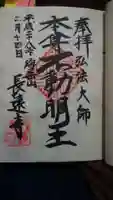 奉拝 弘法大師
本尊不動明王
平成二十八年
二月十四日
長遠寺